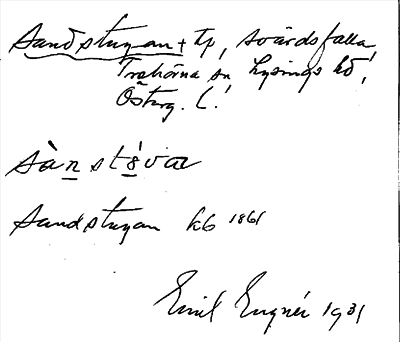 Sandstugan + tp, Svärdsfalla,
Trehörna sn Lysings hd,
Österg. l.
sànstéva
Sandstugan kb 1861
Emil Engnér 1931